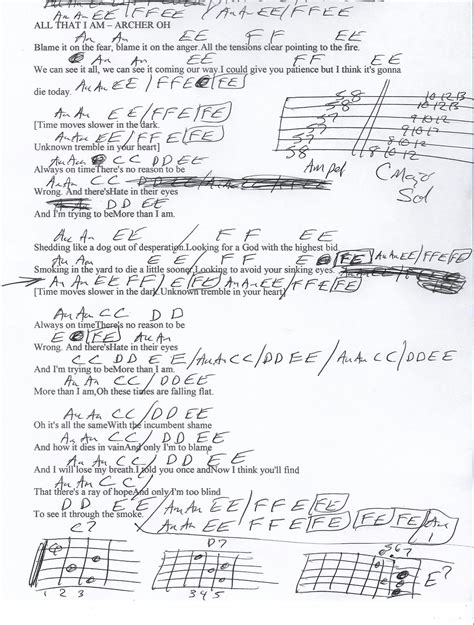 Am Am EE / F F E E / Am Am EE / F F E E
ALL THAT I AM – ARCHER OH
Am Am EE F F EE
Blame it on the fear, blame it on the anger. All the tensions clear pointing to the fire.
Am Am EE F F EE
We can see it all, we can see it coming our way.I could give you patience but I think it's gonna
die today. Am Am EE / F F E E / FE
Am Am EE / F F E E / FE
[Time moves slower in the dark.
Am Am EE / F F E E / FE
Unknown tremble in your heart]
Am Am C C D D E E
Always on timeThere's no reason to be
Am Am C C
Wrong. And there'sHate in their eyes
D D EE
And I'm trying to beMore than I am.
58 10 12 13
58 10 12 13
57 9 10 12
57 9 10 12
57 8 10 12
58 8 10 12
Am pel
C Major
Sol
Am Am EE / F F EE
Shedding like a dog out of desperation.Looking for a God with the highest bid
Am Am EE F F EE / FE / Am Am EE / F F E E / FE
Smoking in the yard to die a little sooner.Looking to avoid your sinking eyes.
Am Am EE FF / E / FE / Am Am EE / F F E E / FE
[Time moves slower in the dark.Unknown tremble in your heart]
Am Am CC D D
Always on timeThere's no reason to be
E FE Am Am
Wrong. And there'sHate in their eyes
CC DD EE / Am Am CC / DD EE / Am Am CC / DD EE
And I'm trying to beMore than I am.
Am Am CC / DD EE
More than I am,Oh these times are falling flat.
Am Am CC / DD EE
Oh it's all the sameWith the incumbent shame
Am Am CC / DD EE
And how it dies in vainAnd only I'm to blame
Am Am CC / DD EE
And I will lose my breath.I told you once andNow I think you'll find
Am Am CC
That there's a ray of hopeAnd only I'm too blind
DD EE / Am Am EE / F F E E / FE
To see it through the smoke.
Am Am EE F F E E / FE / FE / FE / Am
1
C7 D7 5 6 7
E7
1 2 3 3 4 5